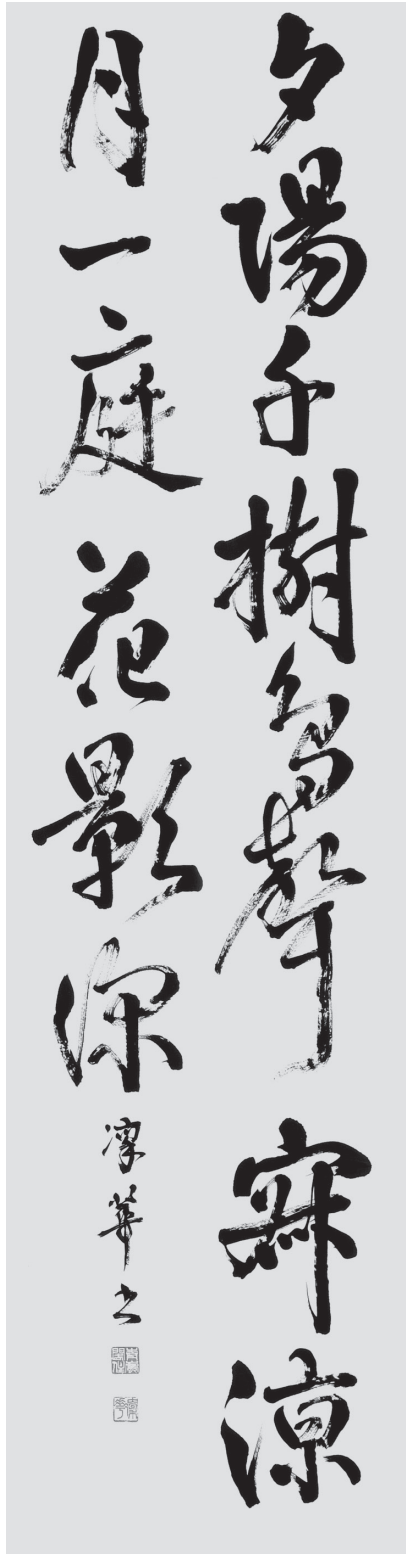 夕陽千樹鳥聲寂涼
月一庭花影深
凛華書